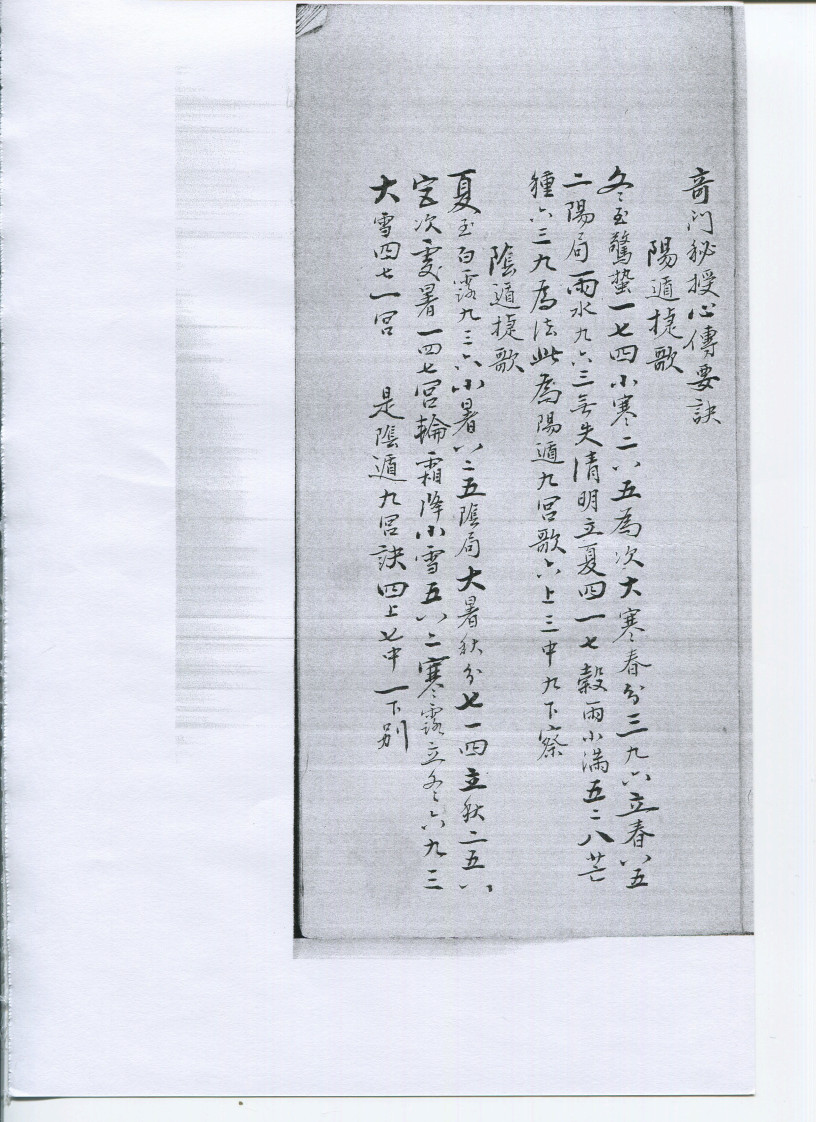 奇门秘授心傳要訣
陽遁捷歌
冬至驚蟄一七四小寒二八五為次大寒春分三九六立春八五
二陽局雨水九六三無失清明立夏四一七穀雨小滿五二八芒
種六三九為法此為陽遁九宮歌六上三中九下察
陰遁捷歌
夏至白露九三六小暑八二五陰局大暑秋分七一四立秋二五八
宮次處暑一四七宮輪霜降小雪五八二寒露立冬六九三
大雪四七一宮 是陰遁九宮訣四上七中一下别